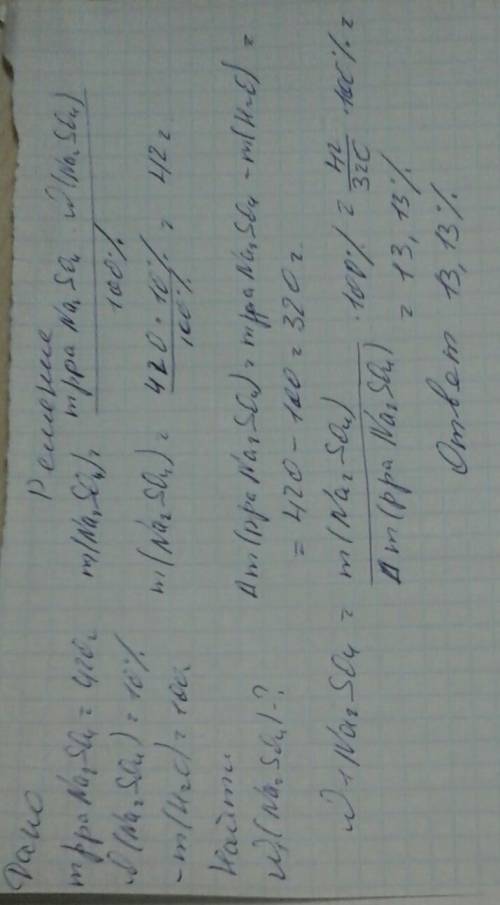 Дано
mрра Na₂SO₄ = 420г
ω(Na₂SO₄) = 10%
-m(H₂O) = 100г
Найти
ω₁(Na₂SO₄) - ?
Решение
m(Na₂SO₄) = mрра Na₂SO₄ · ω(Na₂SO₄) / 100%
m(Na₂SO₄) = 420 · 10% / 100% = 42 г
Δm(рра Na₂SO₄) = mрра Na₂SO₄ - m(H₂O) =
= 420 - 100 = 320 г
ω₁ Na₂SO₄ = m(Na₂SO₄) / Δm(рра Na₂SO₄) · 100% = 42/320 · 100% =
= 13,13%
Ответ 13,13%